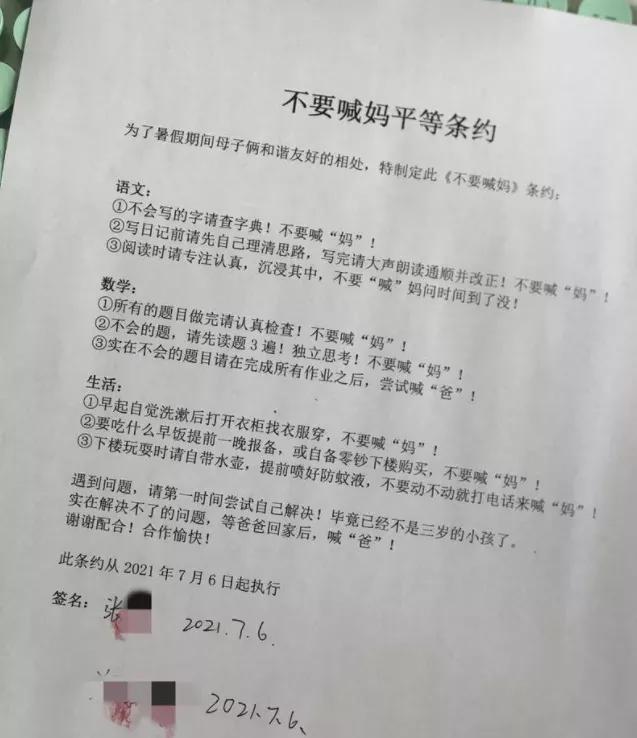 不要喊妈平等条约
为了暑假期间母子俩和谐友好的相处，特制定此《不要喊妈》条约：
语文：
①不会写的字请查字典！不要喊“妈”！
②写日记前请先自己理清思路，写完请大声朗读通顺并改正！不要喊“妈”！
③阅读时请专注认真，沉浸其中，不要“喊”妈问时间到了没！
数学：
①所有的题目做完请认真检查！不要喊“妈”！
②不会的题，请先读题3遍！独立思考！不要喊“妈”！
③实在不会的题目请在完成所有作业之后，尝试喊“爸”！
生活：
①早起自觉洗漱后打开衣柜找衣服穿，不要喊“妈”！
②要吃什么早饭提前一晚报备，或自备零钱下楼购买，不要喊“妈”！
③下楼玩耍时请自带水壶，提前喷好防蚊液，不要动不动就打电话来喊“妈”！
遇到问题，请第一时间尝试自己解决！毕竟已经不是三岁的小孩了。
实在解决不了的问题，等爸爸回家后，喊“爸”！
谢谢配合！合作愉快！
此条约从2021年7月6日起执行
签名：张 2021.7.6.
2021.7.6、